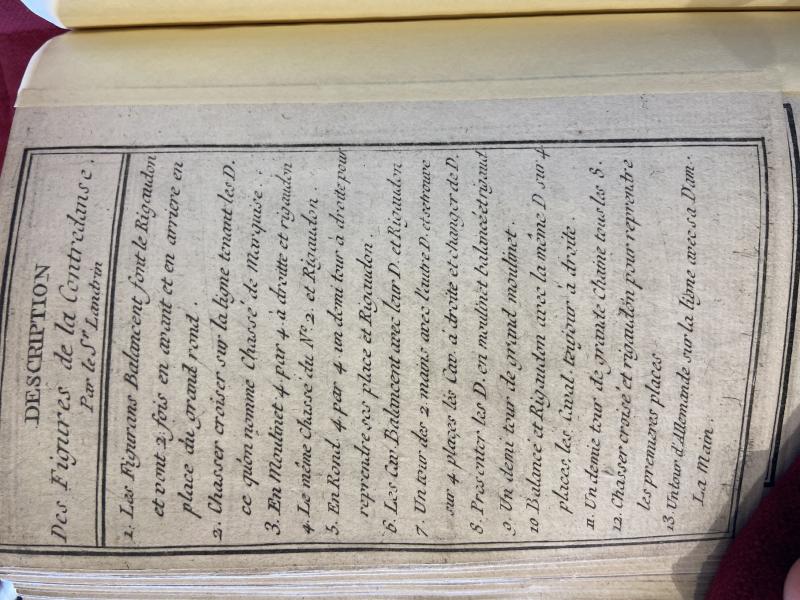 DESCRIPTION
Des Figures de la Contredanse.
Par le Sr. Landrin
1. Les Figurans Balancent font le Rigaudon
et vont 2 fois en avant et en arriere en
place du grand rond.
2. Chasser croiser sur la ligne tenant les D.
ce qu'on nomme Chassé de Marquise.
3. En Moulinet 4 par 4 à droite et rigaudon
4. Le même Chassé du No. 2. et Rigaudon.
5. En Rond 4 par 4 un demi tour à droite pour
reprendre ses place et Rigaudon.
6. Les Cav. Balancent avec leur D. et Rigaudon
7. Un tour des 2 mains avec l'autre D. et se trouve
sur 4 places les Cav. à droite et changer de D.
8. Presenter les D. en moulinet balancé et rigaud
9. Un demi tour de grand moulinet
10 Balancé et Rigaudon avec la même D sur 4
places, les Caval. toujour à droite.
11. Un demie tour de grande Chaine tous les 8.
12. Chasser croisé et rigaudon pour reprentre
les premieres places
13. Un tour d'Allemande sur la ligne avec sa Dam.
La Main.